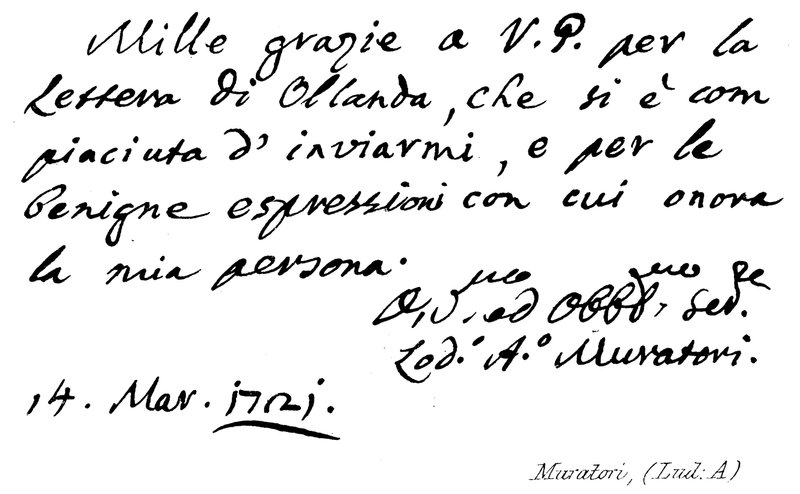 Mille grazie a V.P. per la
Lettera di Ollanda, che si è com
piaciuta d' inviarmi, e per le
benigne espressioni con cui onora
la mia persona.
mo mo re
Div. ed Obbl. Ser.
Lod.º A.º Muratori.
14. Mar. 1721.
Muratori, (Lud: A)